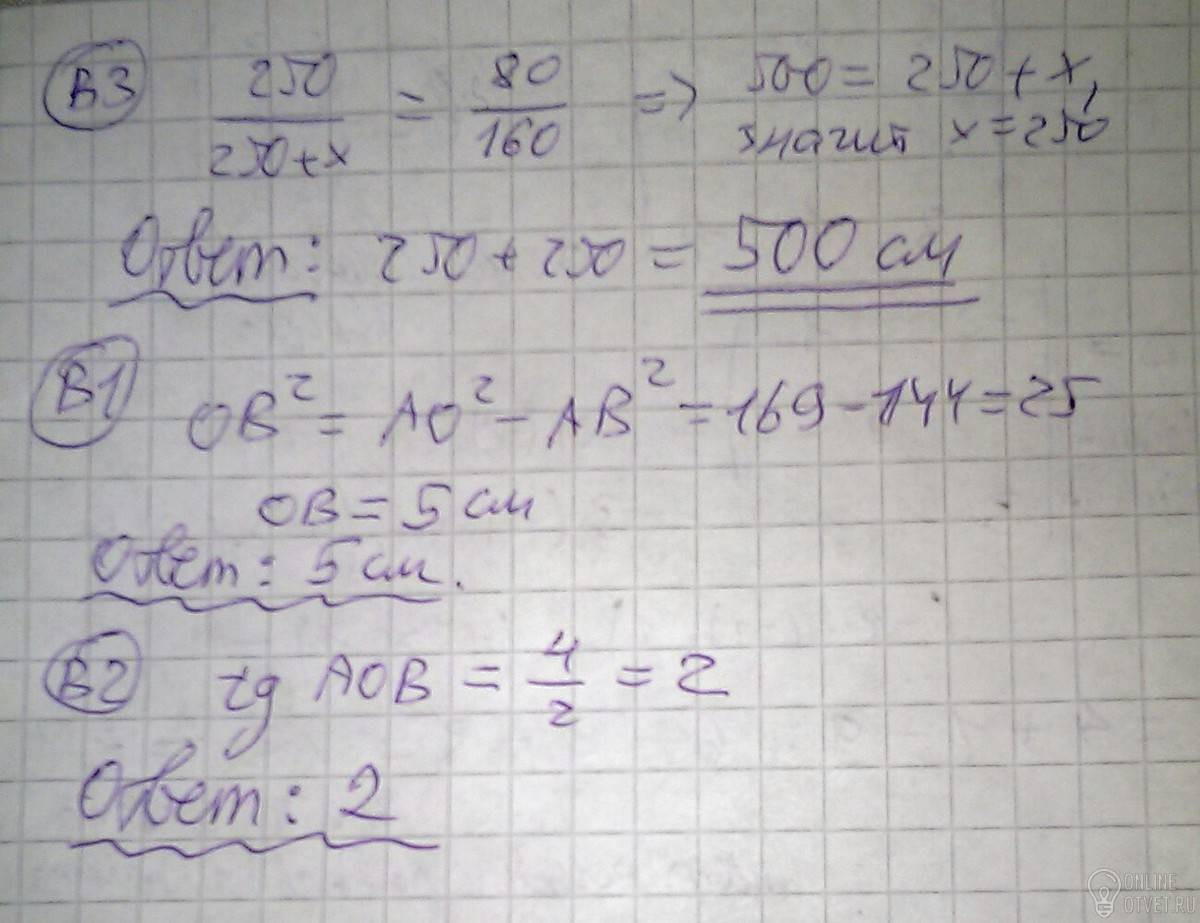 В3 250/(250+x) = 80/160 => 500 = 250 + x,
значит x = 250
Ответ: 250 + 250 = 500 см
В1 OB² = AO² - AB² = 169 - 144 = 25
OB = 5 см
Ответ: 5 см.
В2 tg AOB = 4/2 = 2
Ответ: 2
ONLINE
OTVET.RU